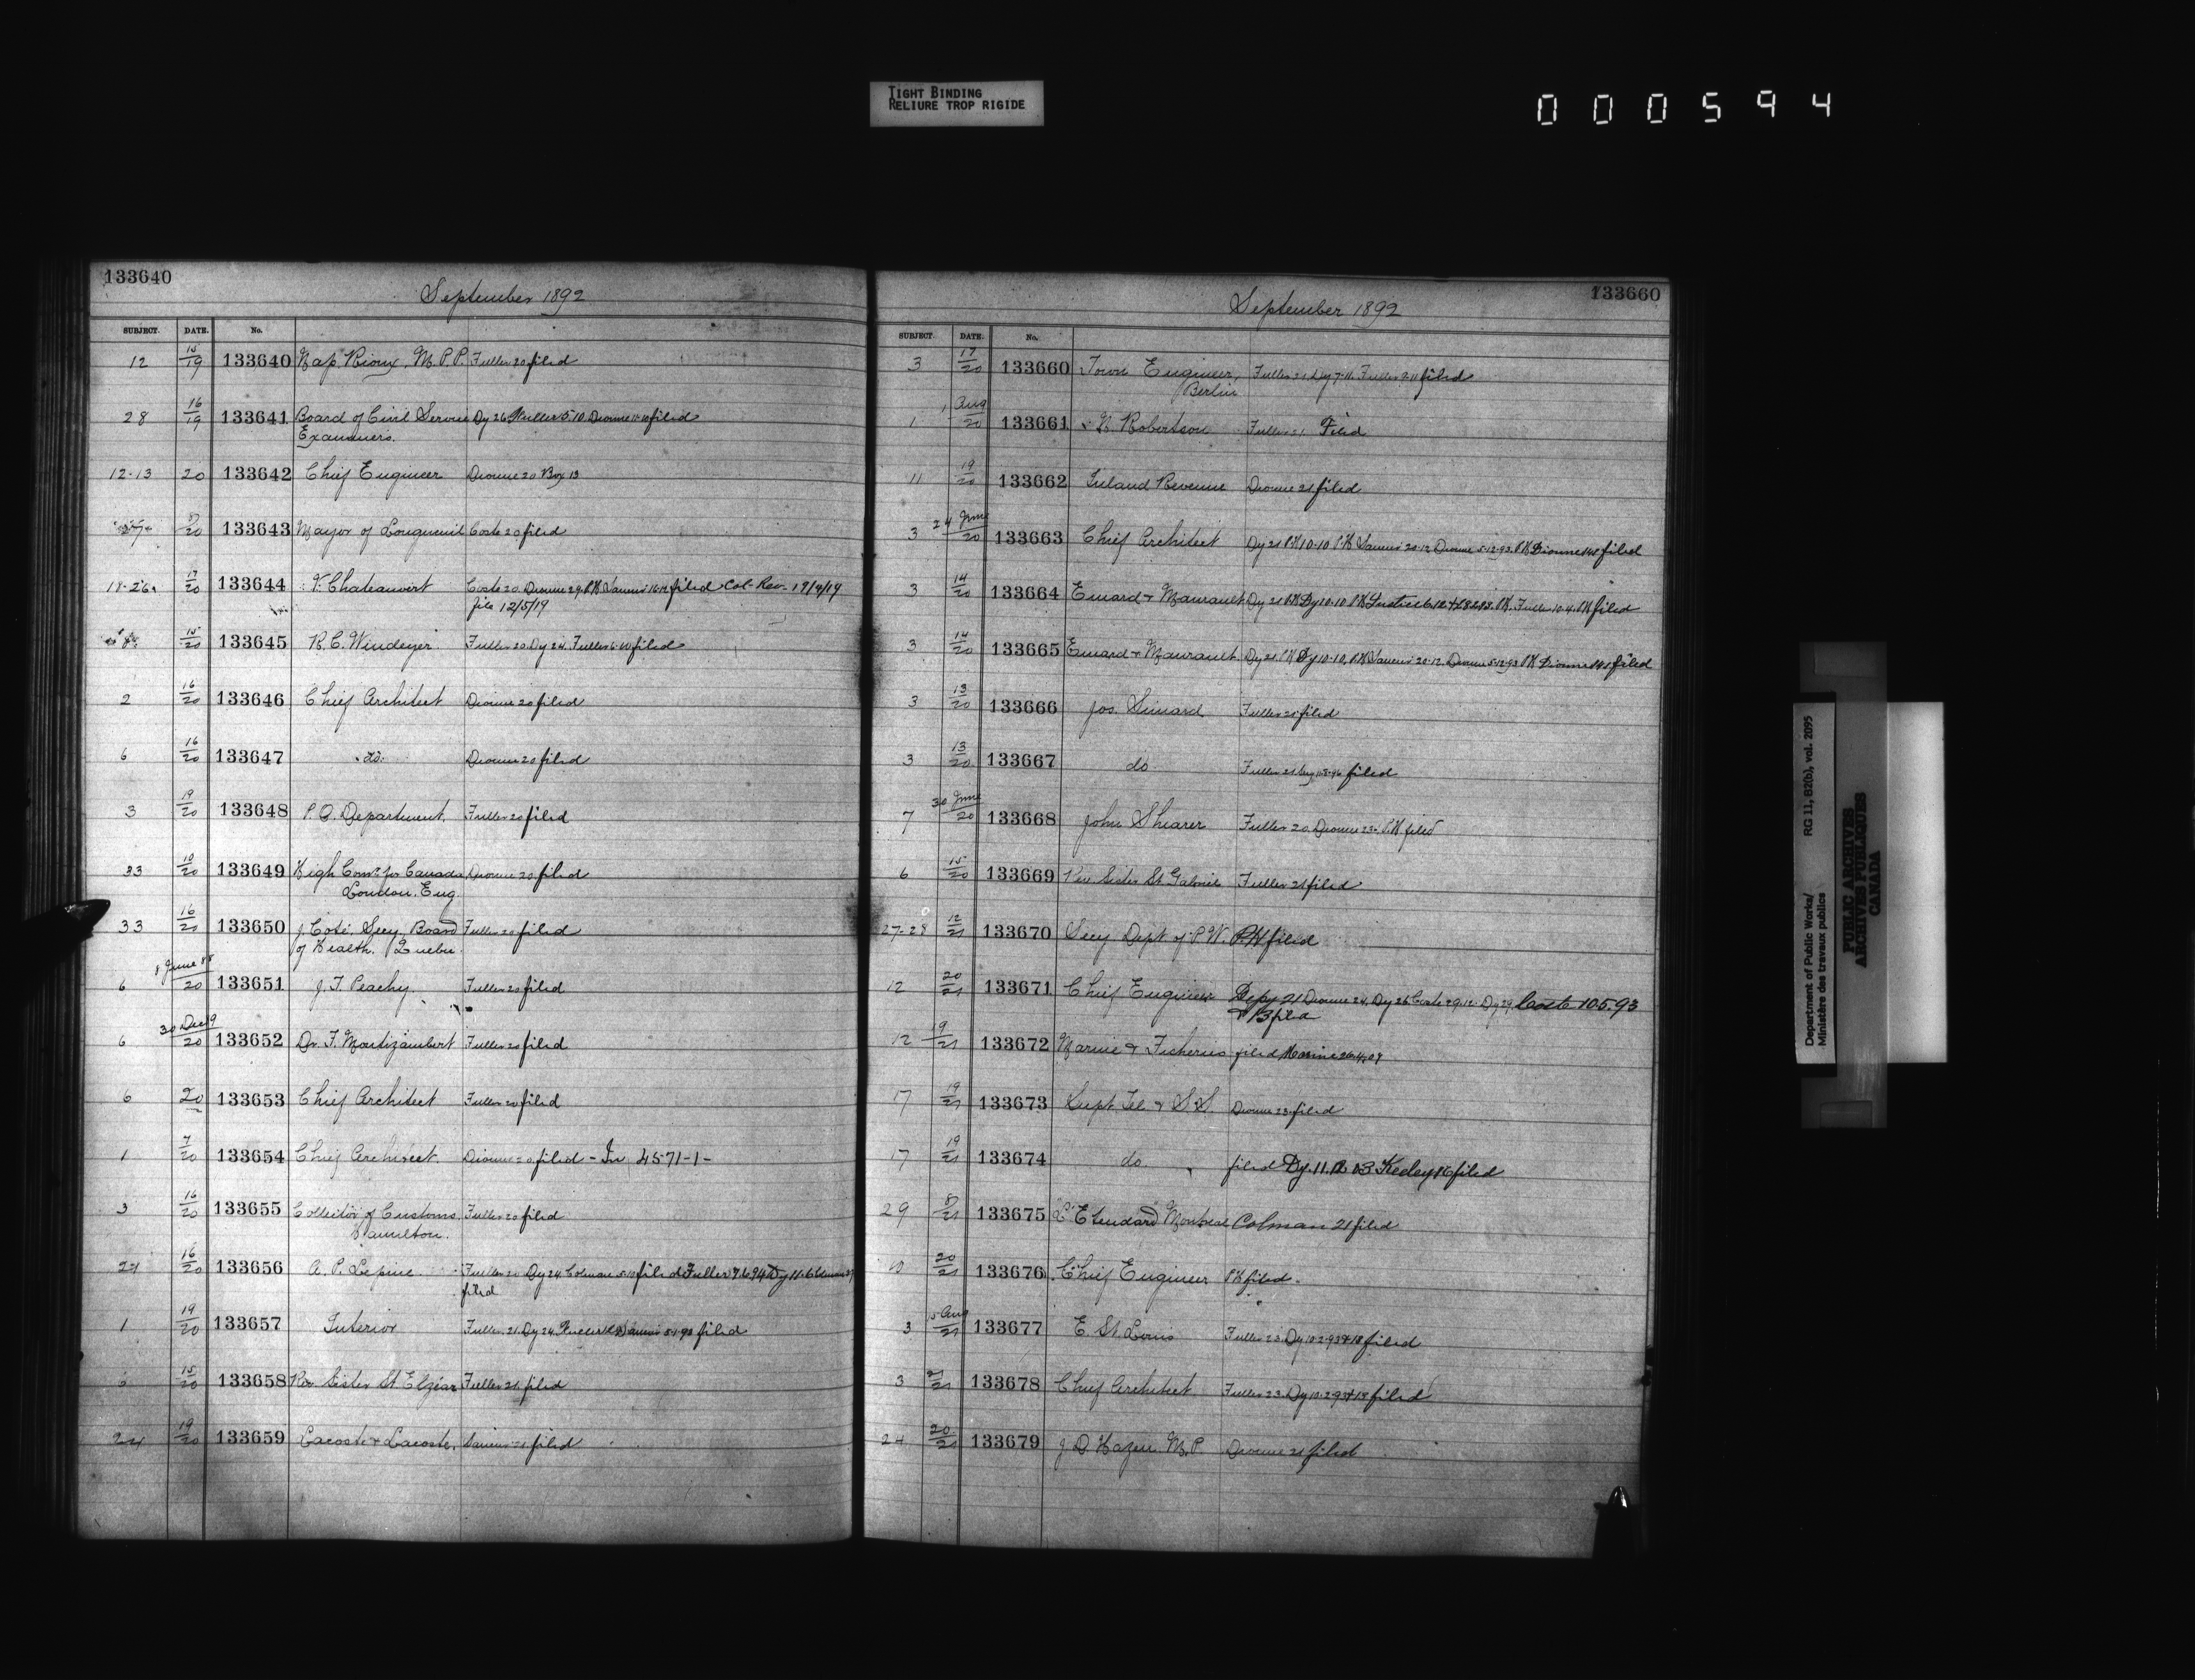 TIGHT BINDING
RELIURE TROP RIGIDE
000594
133640
September 1892
SUBJECT. DATE. No.
12 15/19 133640 Nap. Rioux, M.P.P. Fuller 20 filed
28 16/19 133641 Board of Civil Service Dy 26 Fuller 5.10. Dionne 11.10 filed
Examiners.
12-13 20 133642 Chief Engineer Dionne 20 Box 13
20 133643 Mayor of Longueuil Coste 20 filed
17/20 133644 Chateauvert Coste 20 Dionne 29 filed Col-Rev. 17/4/19
file 12/5/19
15/20 133645 R. C. Windeyer Fuller 20 Dy 24. Fuller filed
2 16/20 133646 Chief Architect Dionne 20 filed
6 16/20 133647 do. Dionne 20 filed
3 19/20 133648 P. O. Department. Fuller 20 filed
33 10/20 133649 High Comr. for Canada Dionne 20 filed
London. Eng
33 16/20 133650 J. Coté Secy. Board Fuller 20 filed
of Health. Quebec
6 8 June 88/20 133651 J. F. Peachy Fuller 20 filed
6 30 Dec 89/20 133652 Dr. F. Montizambert Fuller 20 filed
6 20 133653 Chief Architect Fuller 20 filed
1 7/20 133654 Chief Architect. Dionne 20 filed - In 4571-1-
3 16/20 133655 Collector of Customs. Fuller 20 filed
Hamilton.
24 16/20 133656 A. P. Lepine Fuller 20 Dy 24 Colman 5.10 filed Fuller 7.6.94 Dy 11.6 Colman
filed
1 19/20 133657 Interior Fuller 21. Dy 24. filed
6 15/20 133658 Rev Sister St Elzéar Fuller 21 filed
24 19/20 133659 Lacoste & Lacoste. 21 filed
133660
September 1892
SUBJECT. DATE. No.
3 17/20 133660 Town Engineer, Fuller 21 Dy 7.11. Fuller filed
Berlin
1 Aug/20 133661 Robertson Fuller 21 Filed
11 19/20 133662 Inland Revenue Dionne 21 filed
3 24 June/20 133663 Chief Architect Dy 21 PK 10-10 PK 20.12 Dionne 5.12.93. PK Dionne filed
3 14/20 133664 Emard & Maurault Dy 21 PK Dy 10.10 PK Fuller 10.4. PK filed
3 14/20 133665 Emard & Maurault Dy 21. PK Dy 10-10. PK 20.12. Dionne 5.12.93 PK Dionne filed
3 13/20 133666 Jos. Simard Fuller 21 filed
3 13/20 133667 do Fuller 21 filed
7 30 June/20 133668 John Shearer Fuller 20 Dionne 23. PK filed
6 15/20 133669 Rev Sister St Gabriel Fuller 21 filed
27-28 12/21 133670 Secy Dept of P. W. PK filed
12 20/21 133671 Chief Engineer Depy 21 Dionne 24. Dy 26 Coste 29.12. Dy 29. Coste 10.5.93
13 filed
12 9/21 133672 Marine & Fisheries filed Marine 26.4.09
17 19/21 133673 Supt. Tel. & S.S. Dionne 23 filed
17 19/21 133674 do filed Dy. 11. 12 03 Keeley 16 filed
29 21 133675 L'Etendard Montreal Colman 21 filed
20/21 133676 Chief Engineer PK filed.
3 15 Aug/21 133677 E St. Louis Fuller 23. Dy 10.2.93 & 18 filed
3 21 133678 Chief Architect Fuller 23. Dy 10.2.93 & 18 filed
24 20/21 133679 J. D. Hazen M.P. Dionne 21 filed
Department of Public Works/ RG 11, B2(b), vol. 2095
Ministère des travaux publics
PUBLIC ARCHIVES
ARCHIVES PUBLIQUES
CANADA